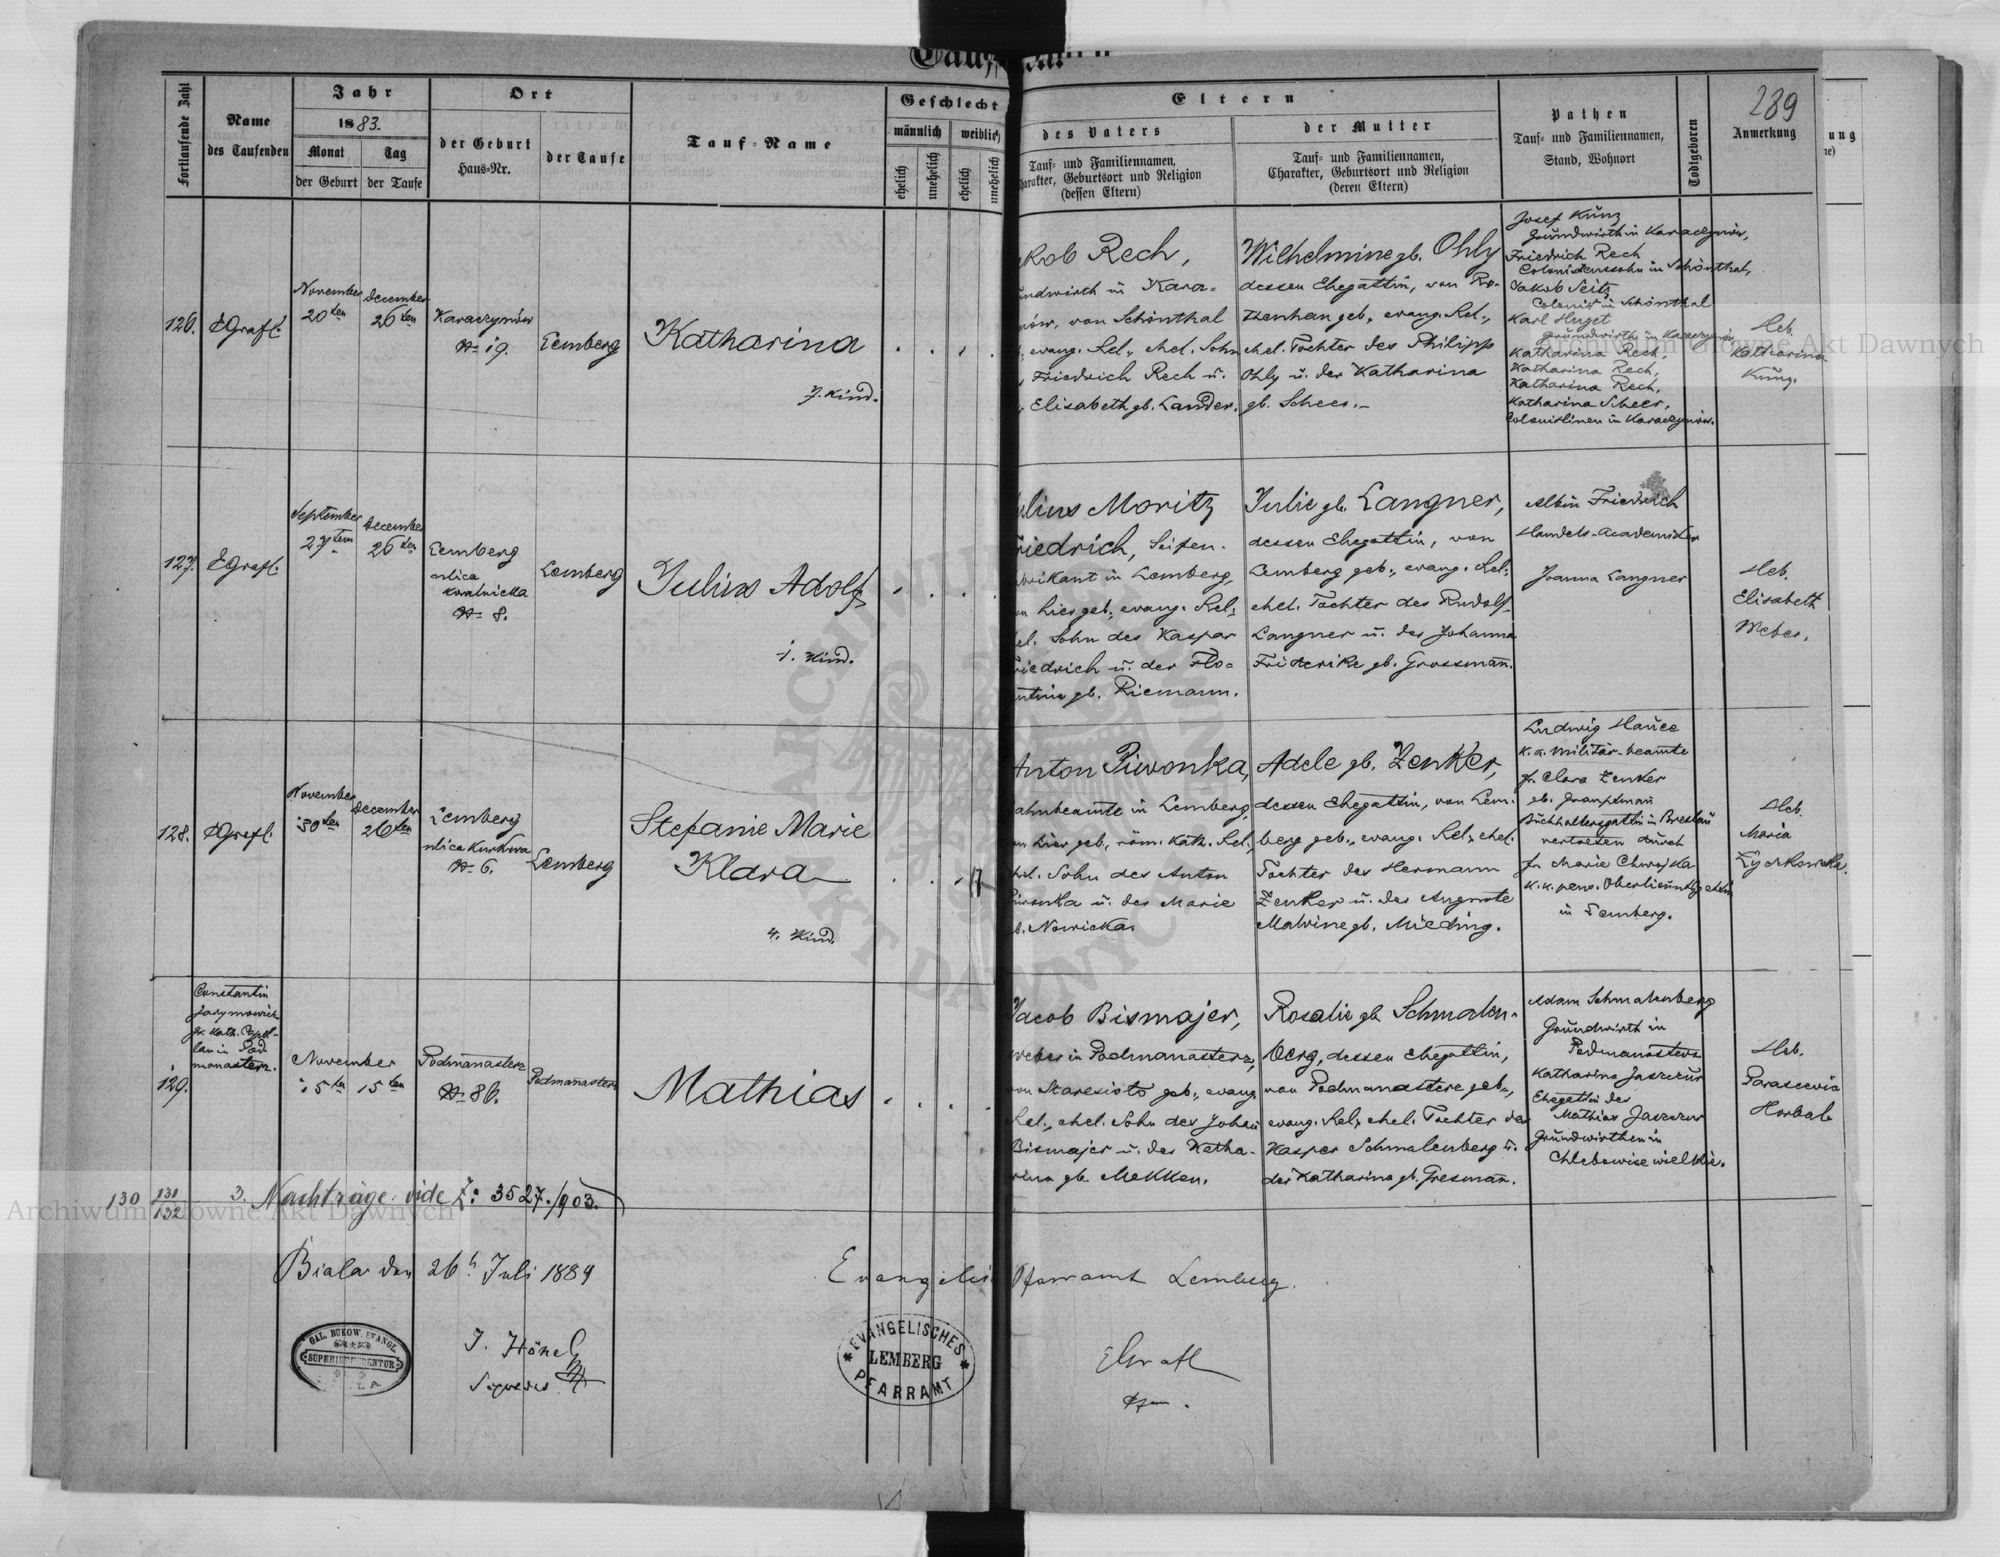 Fortlaufende Zahl
Name
des Taufenden
Jahr
1883.
Monat
Tag
der Geburt
der Taufe
Ort
der Geburt
Haus-Nr.
der Taufe
Tauf-Name
Geschlecht
männlich
weiblich
ehelich
unehelich
ehelich
unehelich
Eltern
des Vaters
Tauf- und Familiennamen,
Charakter, Geburtsort und Religion
(dessen Eltern)
der Mutter
Tauf- und Familiennamen,
Charakter, Geburtsort und Religion
(deren Eltern)
Pathen
Tauf- und Familiennamen,
Stand, Wohnort
Todtgeboren
239
Anmerkung
126.
EGrafl.
November
20ten
December
26ten
Karaczynów
No 19.
Lemberg
Katharina
7. Kind.
kob Rech,
undwirth in Kara-
nów, von Schönthal
, evang. Rel., ehel. Sohn
Friedrich Rech u.
Elisabeth gb. Lander.
Wilhelmine gb. Ohly
dessen Ehegattin, von Ro-
thenhan geb., evang. Rel.,
ehel. Tochter des Philipp
Ohly u. der Katharina
gb. Scheer.-
Josef Kunz
Grundwirth in Karaczynów,
Friedrich Rech
Colonistenssohn in Schönthal,
Jakob Seitz
Colonist in Schönthal
Karl Huget
Grundwirth in Karaczynów
Katharina Rech,
Katharina Rech,
Katharina Rech,
Katharina Scheer,
Colonistinen in Karaczynów.
Heb.
Katharina
Kunz.
127.
EGrafl.
September
27ten
December
26ten
Lemberg
ulica
No 8.
Lemberg
Julius Adolf
1. Kind.
ulius Moritz
riedrich, Seifen-
brikant in Lemberg,
n hier geb., evang. Rel.,
el. Sohn des Kaspar
riedrich u. der Flo-
ntine gb. Riemann.
Julie gb. Langner,
dessen Ehegattin, von
Lemberg geb., evang. Rel.,
ehel. Tochter des Rudolf
Langner u. der Johanna
Friderike gb. Grossmann.
Albin Friedrich
Handels-Academiker
Joanna Langner
Heb.
Elisabeth
Weber.
128.
EGrafl.
November
30ten
December
26ten
Lemberg
ulica Kurkowa
No 6.
Lemberg
Stefanie Marie
Klara
4. Kind.
Anton Piwonka,
ahnbeamte in Lemberg,
n hier geb., röm. kath. Rel.,
hel. Sohn des Anton
Piwonka u. der Marie
b. Nowicka.
Adele gb. Zenker,
dessen Ehegattin, von Lem-
berg geb., evang. Rel., ehel.
Tochter des Hermann
Zenker u. der Auguste
Malwine gb. Mieding.
Ludwig
k. k. Militär-beamte
fr. Clara Zenker
Buchhaltersgattin in Breslau
vertreten durch
fr. Marie
k. k. pens. Oberlieuts gattin
in Lemberg.
Heb.
Maria
129.
Constantin
gr. kath. Capel-
lan in Pod-
monasterz.
November
15ten
15ten
Podmanasterz
No 86.
Podmanasterz
Mathias
Jacob Bismajer,
Weber in Podmanasterz,
von Staresioło geb., evang.
Rel., ehel. Sohn des Johan
Bismajer u. der Katha-
rina gb. Mekken.
Rosalie gb. Schmalen-
berg, dessen Ehegattin,
von Podmanasterz geb.,
evang. Rel., ehel. Tochter des
Kasper Schmalenberg u.
der Katharina gb. Gresman.
Adam Schmalenberg
Grundwirth in
Podmanasterz
Katharina
Ehegattin des
Mathias
Grundwirthen in
Chlebowice wielkie.
Heb.
Parascewia
Horbal
130
131
132
3. Nachträge vide Z: 3527./903.
Biala den 26t Juli 1884
J. Hönel
GAL. BUKOW. EVANGL.
SUPERINTENDENTUR
Evangelis Pfarramt Lemberg.
EVANGELISCHES
LEMBERG
PFARRAMT
EGrafl
Archiwum Główne Akt Dawnych
Archiwum Główne Akt Dawnych